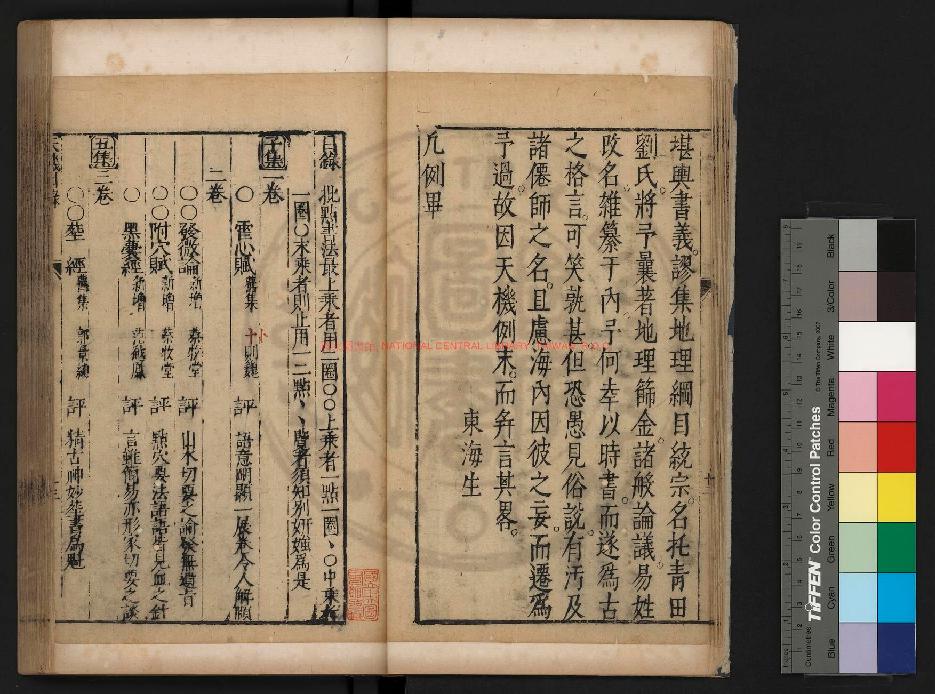 堪輿書義謬集地理綱目統宗名托青田
劉氏將予曩著地理篩金諸般論議易姓
改名雜纂于內予何幸以時書而遂為古
之格言可笑孰甚但恐愚見俗說有汚及
諸僊師之名且慮海內因彼之妄而遷為
予過故因天機例末而弁言其畧
東海生
凡例畢
目錄 批點書法最上乘者用二圈〇〇上乘者一點一圈、〇中乘者
一圈〇末乘者則上用一二點、、覽者須知別妍媸為是
子集一卷
〇 雪心賦 舊集 卜則巍 評 語意明顯一展卷令人解頤
二卷
〇〇發微論 新增 蔡牧堂 評 山水切要之論
〇〇附穴賦 新增 蔡牧堂 評 點穴要法
〇 黑囊經 新增 范越鳳 評 言雖簡易亦形家切要之談
丑集三卷
〇〇葬經 舊集 郭景純 評 精古神妙葬書為魁
NATIONAL CENTRAL LIBRARY, TAIWAN, R.O.C.
TIFFEN Color Control Patches
© The Tiffen Company, 2007
Centimetres
Blue
Cyan
Green
Yellow
Red
Magenta
White
3/Color
Black